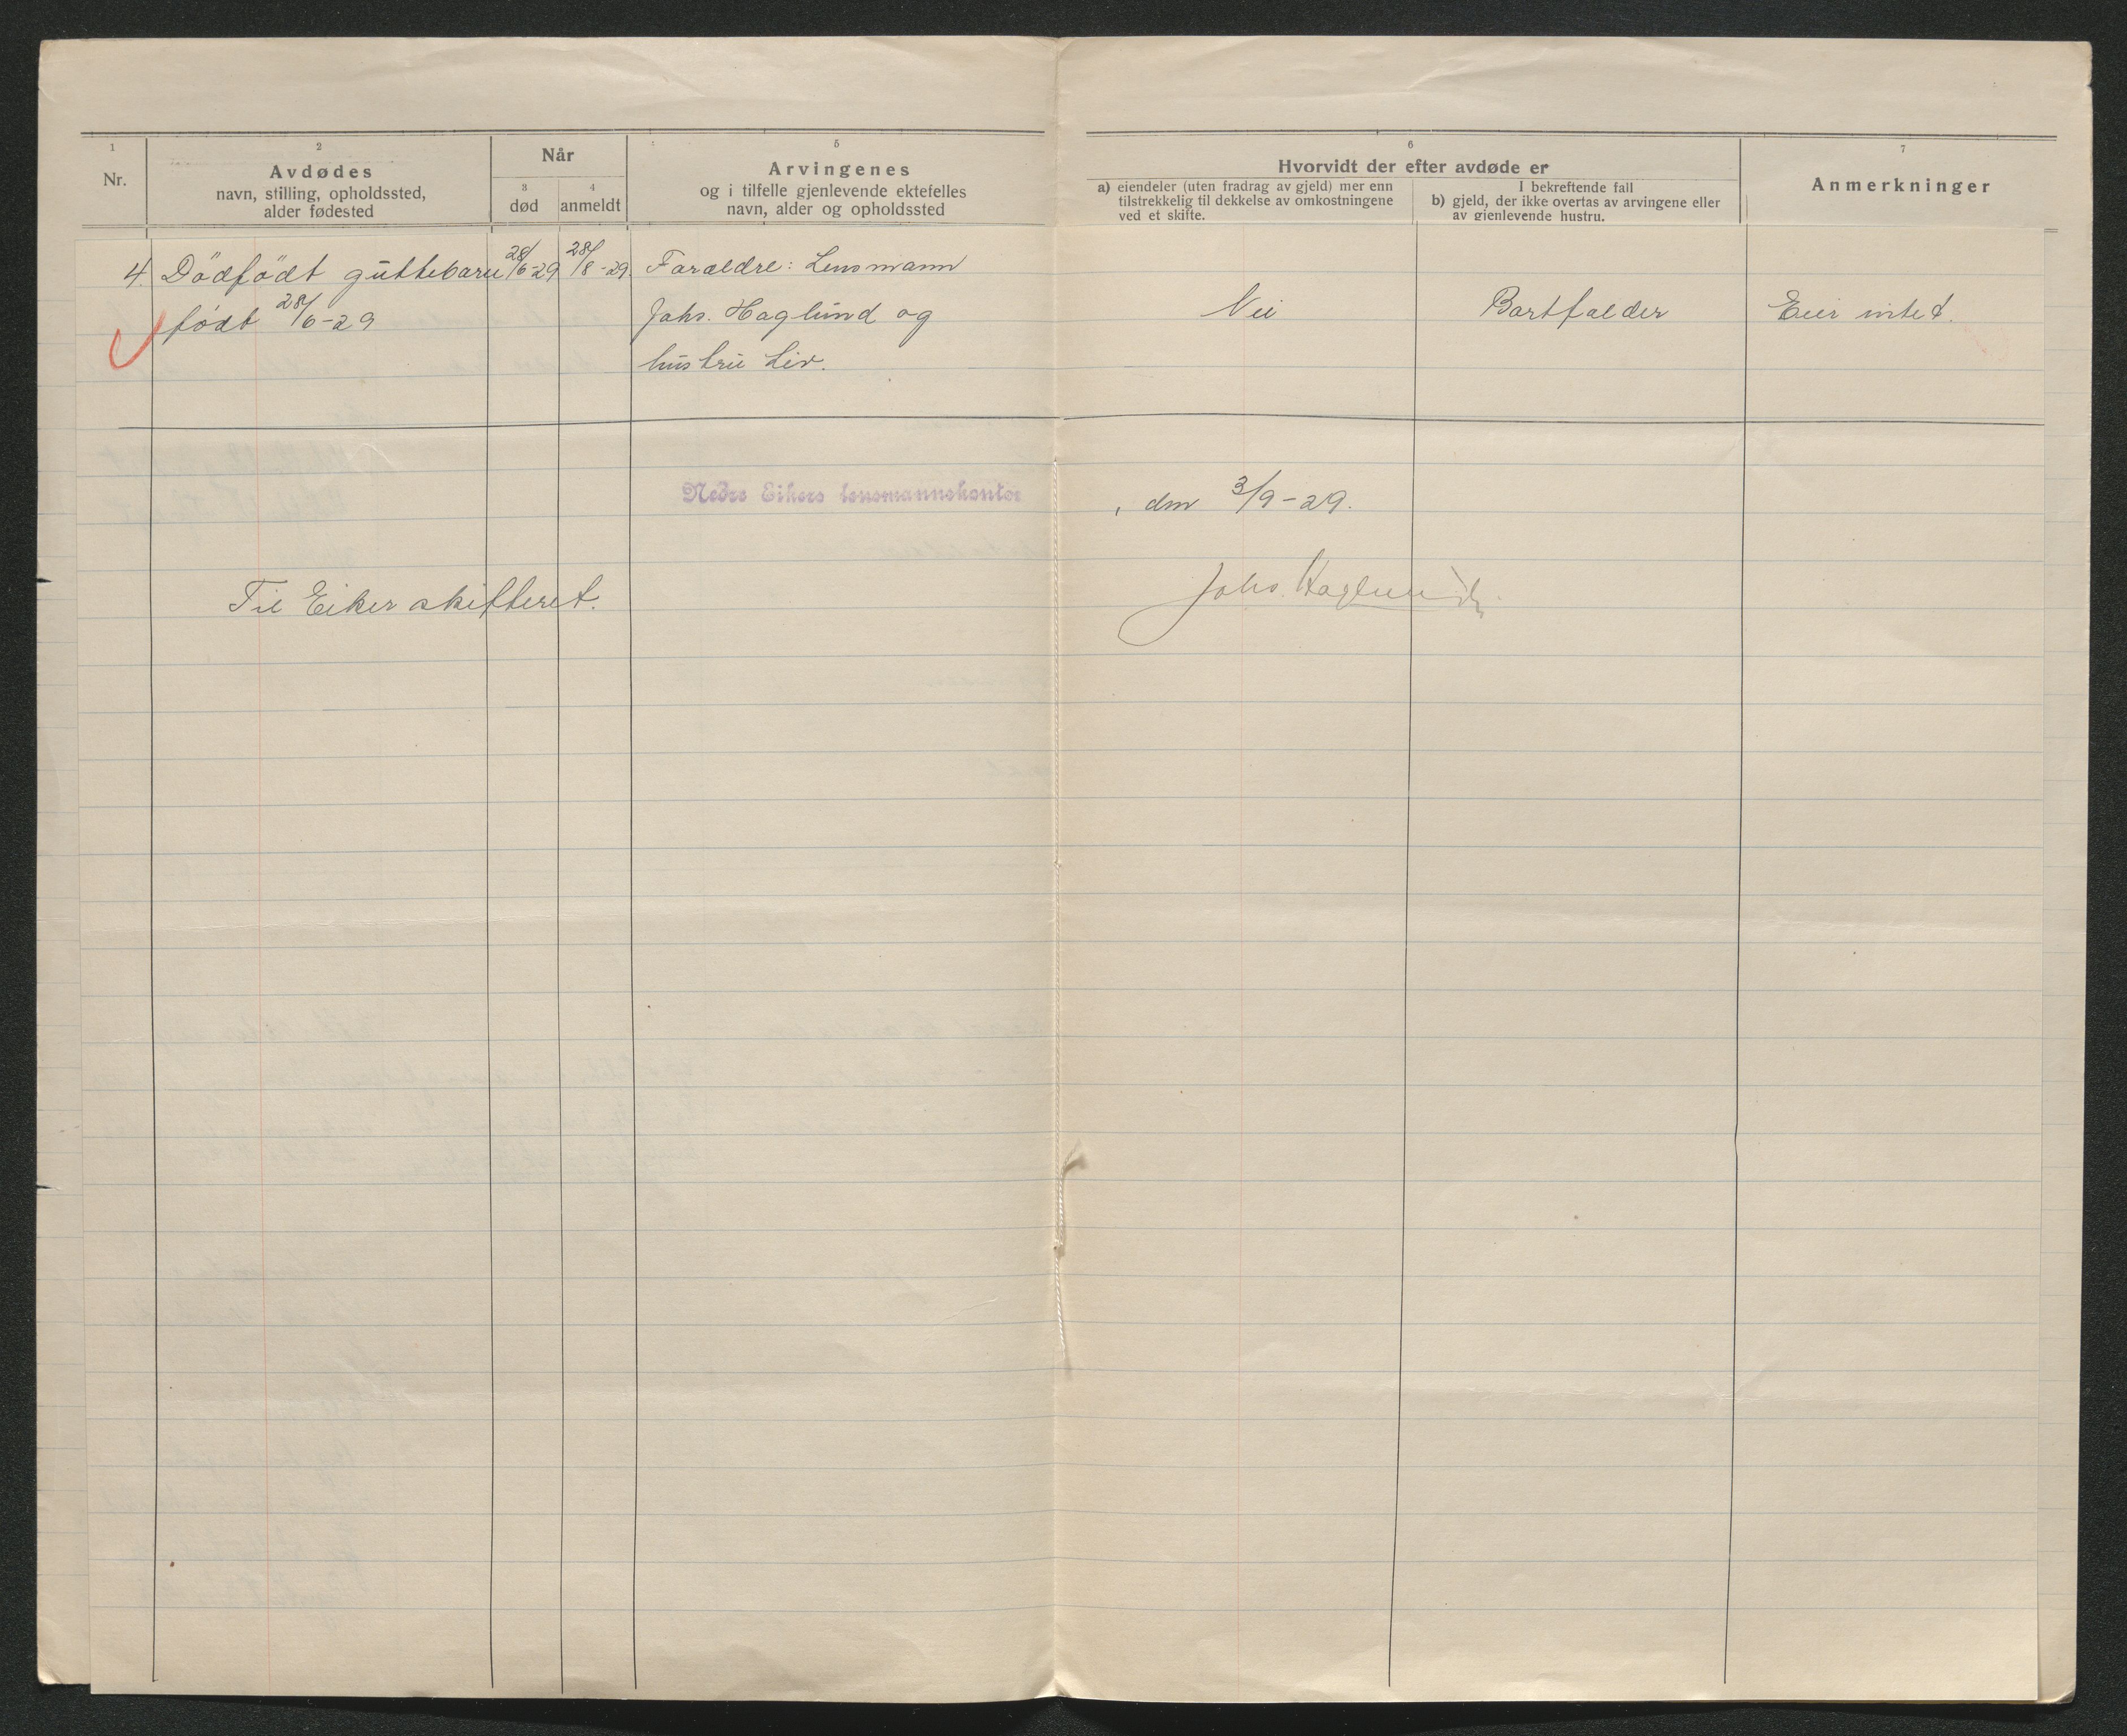 1
Nr.
2
Avdødes
navn, stilling, opholdssted,
alder fødested
Når
3
død
4
anmeldt
5
Arvingenes
og i tilfelle gjenlevende ektefelles
navn, alder og opholdssted
6
Hvorvidt der efter avdøde er
a) eiendeler (uten fradrag av gjeld) mer enn
tilstrekkelig til dekkelse av omkostningene
ved et skifte.
I bekreftende fall
b) gjeld, der ikke overtas av arvingene eller
av gjenlevende hustru.
7
Anmerkninger
4. Dödfödt guttebarn 28/6-29 28/8-29. Forældre: Lensmann
födt 28/6-29 Johs. Haglund og Nei Bortfalder Eier intet.
hustru Liv.
Nedre Eikers lensmannskontor , den 3/9-29.
Til Eiker skifteret. Johs. Haglund